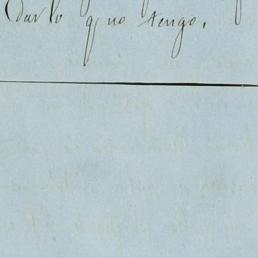 Darlo q no tengo.